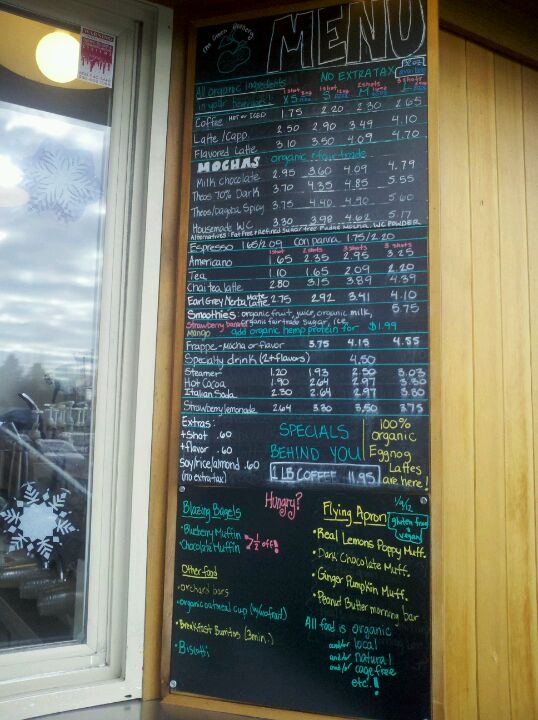 The Green
MENU
WARNING
All organic ingredients
in your beverages!
NO EXTRA TAX
1 shot 1 shot 2 shots 3 shots
XS S M L
Coffee HOT or ICED 1.75 2.20 2.30 2.65
Latte/Capp. 2.50 2.90 3.49 4.10
Flavored Latte 3.10 3.50 4.09 4.70
MOCHAS organic & fair trade
Milk chocolate 2.95 3.60 4.09 4.79
Theos 70% Dark 3.70 4.35 4.85 5.55
Theos/Dagoba Spicy 3.75 4.40 4.90 5.60
Housemade WC 3.30 3.98 4.62 5.17
Alternatives: Fat free & refined sugar free Fudge Mocha, WC POWDER
Espresso 1.65/2.09 con panna 1.75/2.20
1 shot 2 shots 3 shots 3 shots
Americano 1.65 2.35 2.95 3.25
Tea 1.10 1.65 2.09 2.20
Chai tea latte 2.80 3.15 3.89 4.39
Earl Grey/Yerba Mate Latte 2.75 2.92 3.41 4.10
Smoothies: organic fruit, juice, organic milk, 5.75
Strawberry banana organic fair trade sugar, ice
Mango add organic hemp protein for $1.99
Frappe - Mocha or flavor 3.75 4.15 4.55
Specialty drink (2+flavors) 4.50
Steamer 1.20 1.93 2.50 3.03
Hot Cocoa 1.90 2.64 2.97 3.30
Italian Soda 2.30 2.64 2.97 3.30
Strawberry lemonade 2.64 3.30 3.50 3.75
Extras:
+Shot .60
+flavor .60
Soy/rice/almond .60
(no extra tax)
SPECIALS
BEHIND YOU
1 LB COFFEE 11.95
100%
organic
Eggnog
Lattes
are here!
Hungry?
Blazing Bagels
• Blueberry Muffin
• Chocolate Muffin
1/2 off!
Other food
• orchard bars
• Organic oatmeal cup
• Breakfast Burritos (3min.)
• Biscotti
Flying Apron
1/9/12
gluten free
& vegan
• Real Lemons Poppy Muff.
• Dark Chocolate Muff.
• Ginger Pumpkin Muff.
• Peanut Butter morning bar
All food is organic
and/or local
and/or natural
and/or cage free
etc.!